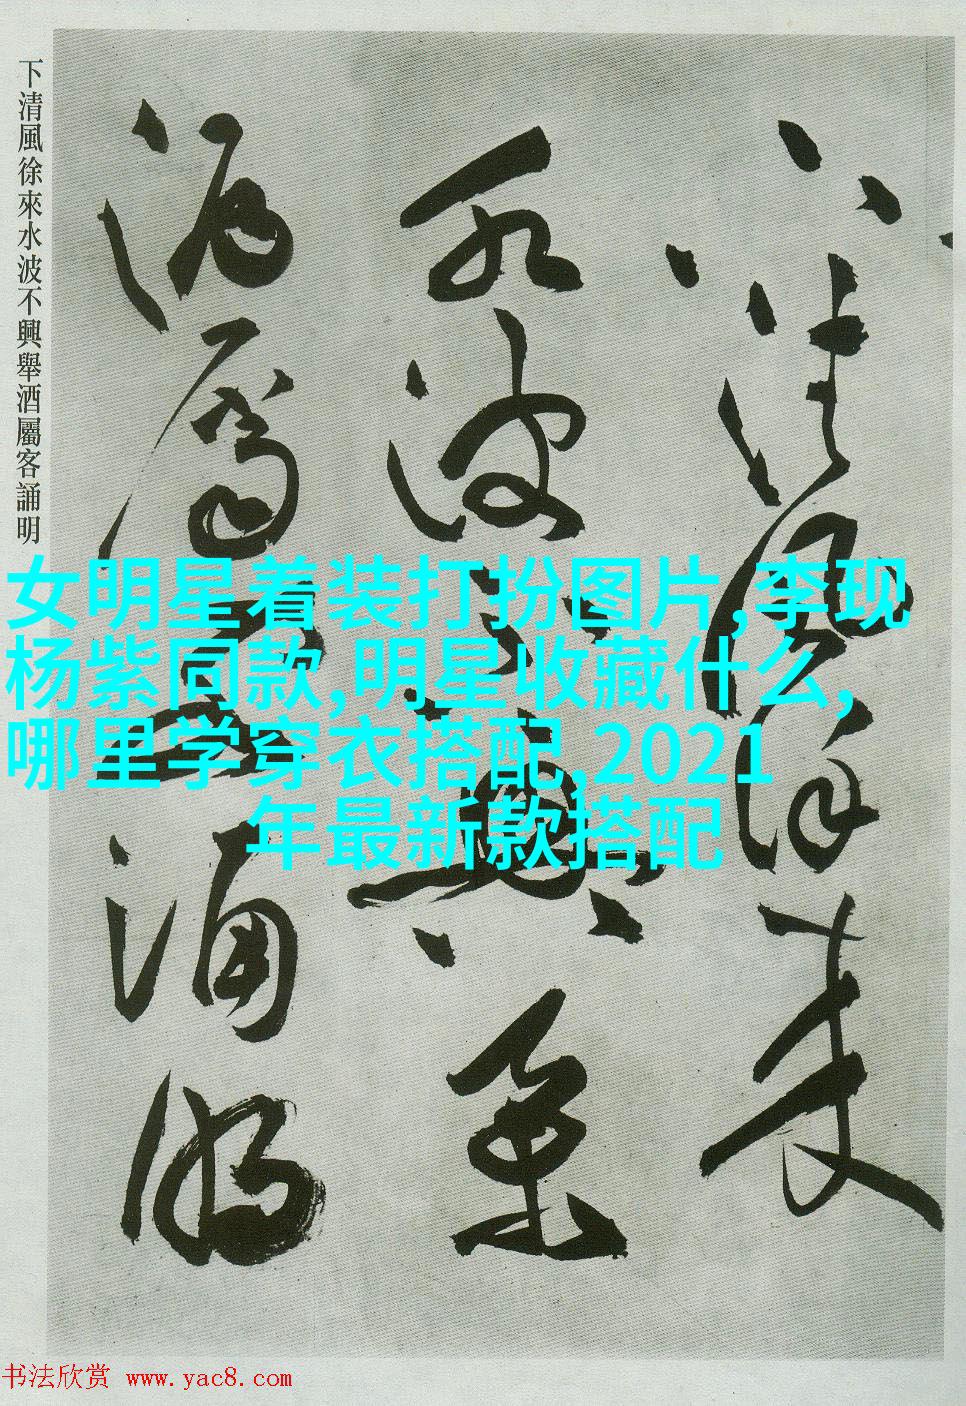 下清風徐來
水波不興舉
酒屬客誦明
下清風徐來水波不興舉酒屬客誦明
女明星着装打扮图片,李现
杨紫同款,明星收藏什么,
哪里学穿衣搭配,2021
年最新款搭配
书法欣赏 www.yac8.com